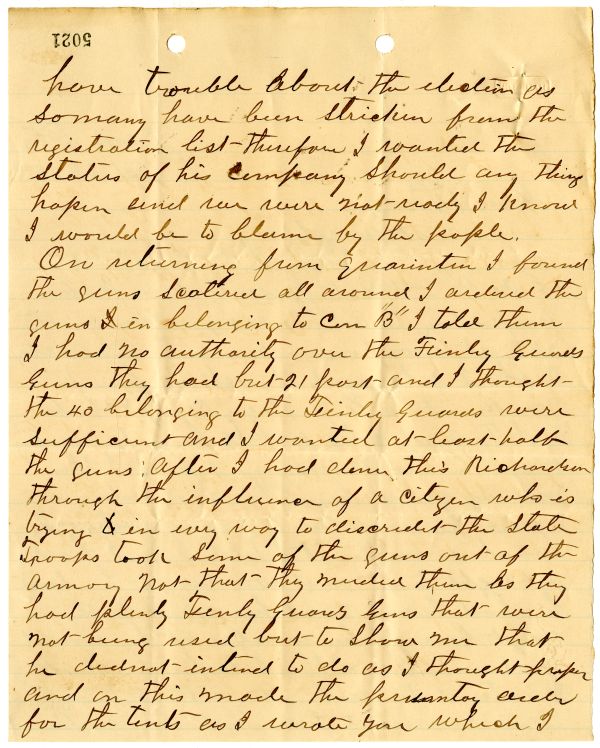 5021
have trouble about the election as
so many have been stricken from the
registration list therefore I wanted the
Status of his Company Should any thing
hapen and we were not ready I know
I would be to blame by the pople.
On returning from quarintin I found
the guns Scatered all around I ordered the
guns in belonging to Com "B" I told them
I had no authority over the Finley Guards
Guns they had but 21 post and I thought
the 40 belonging to the Finley Guards were
Sufficient and I wanted at least half
the guns. After I had done this Richardson
through the influence of a citizen who is
trying in evry way to discredit the State
Troops took Some of the guns out of the
armory not that they needed them as they
had plenty Finley Guards Guns that were
not being used but to Show me that
he did not intend to do as I thought proper
and on this made the order
for the tents as I wrote you which I